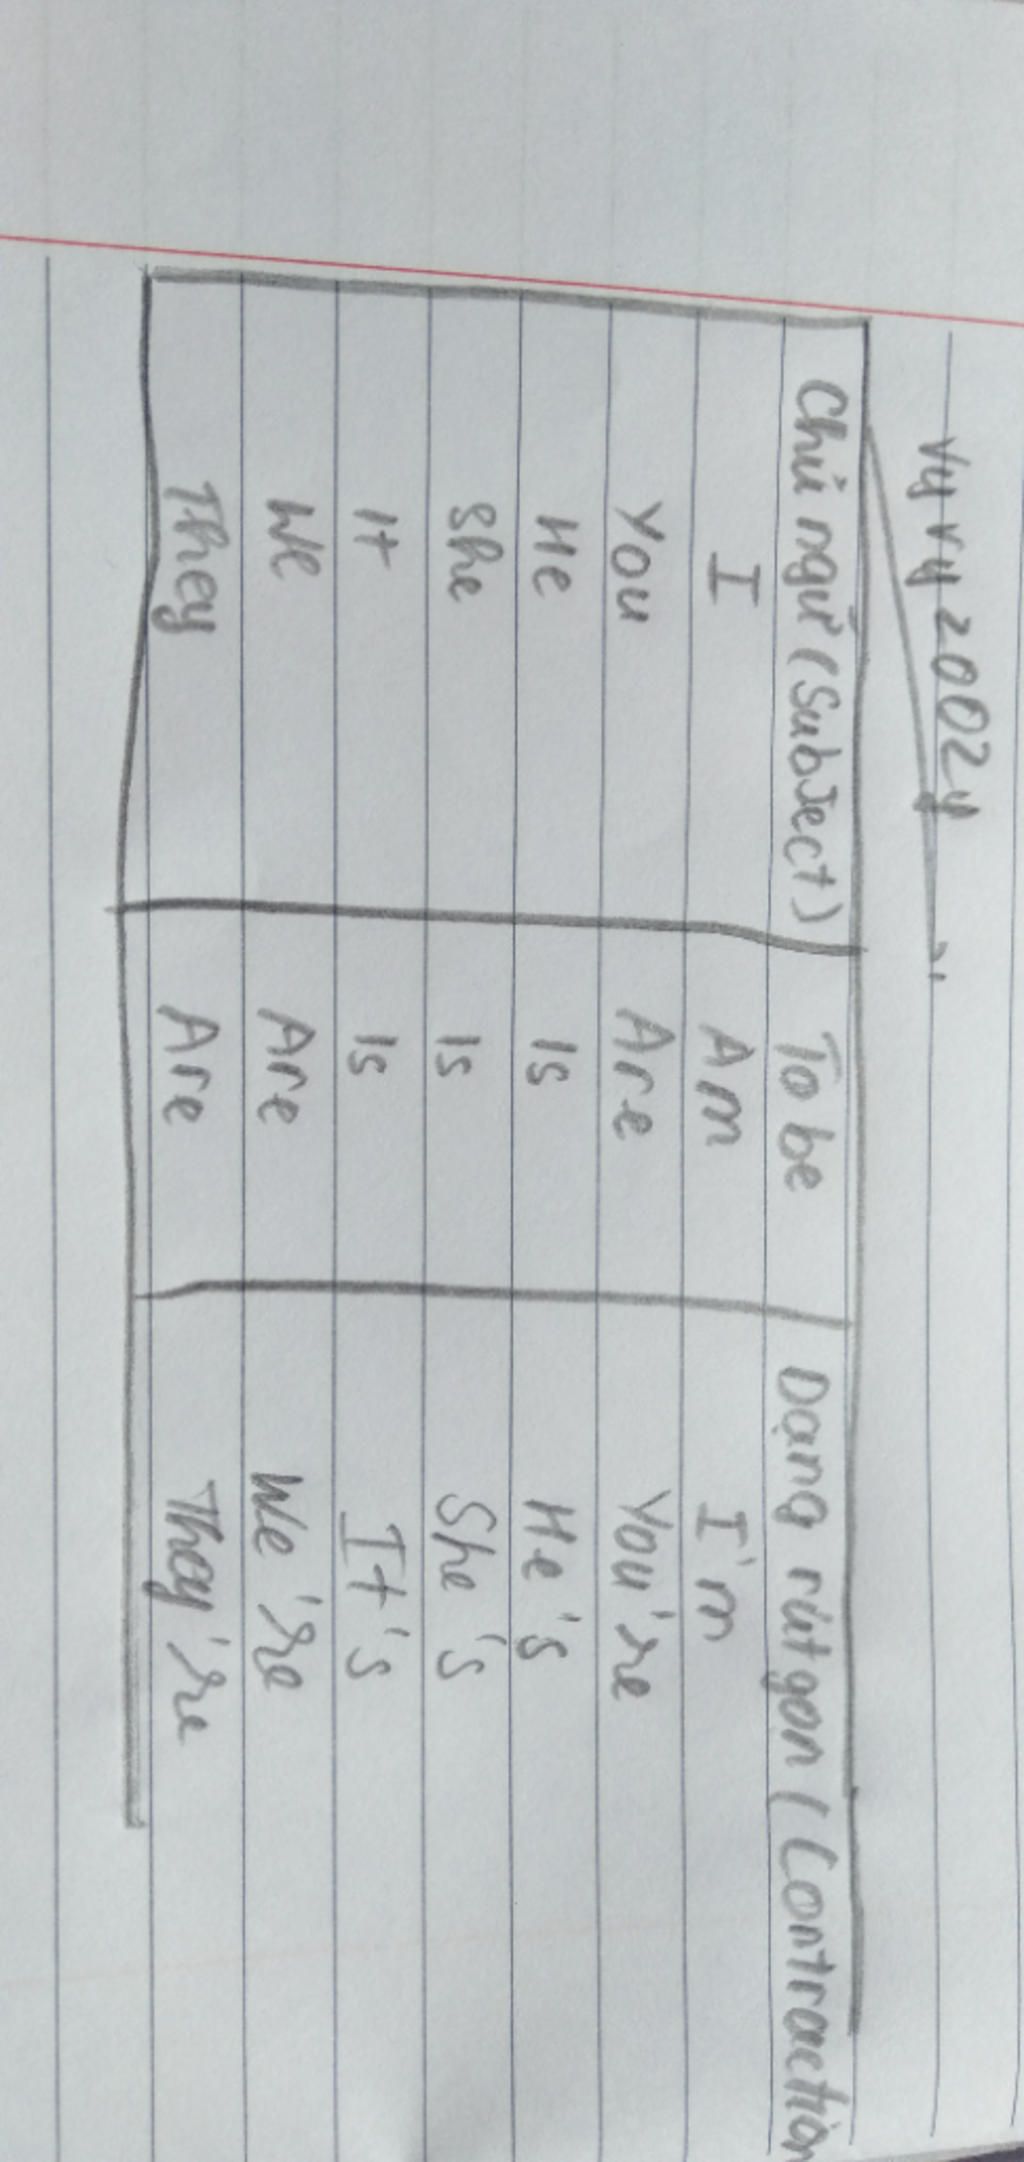 Vy Vy 2002y
Chủ ngữ (Subject) To be Dạng rút gọn (Contraction
I Am I'm
You Are You're
He Is He's
She Is She's
It Is It's
We Are We're
They Are They're